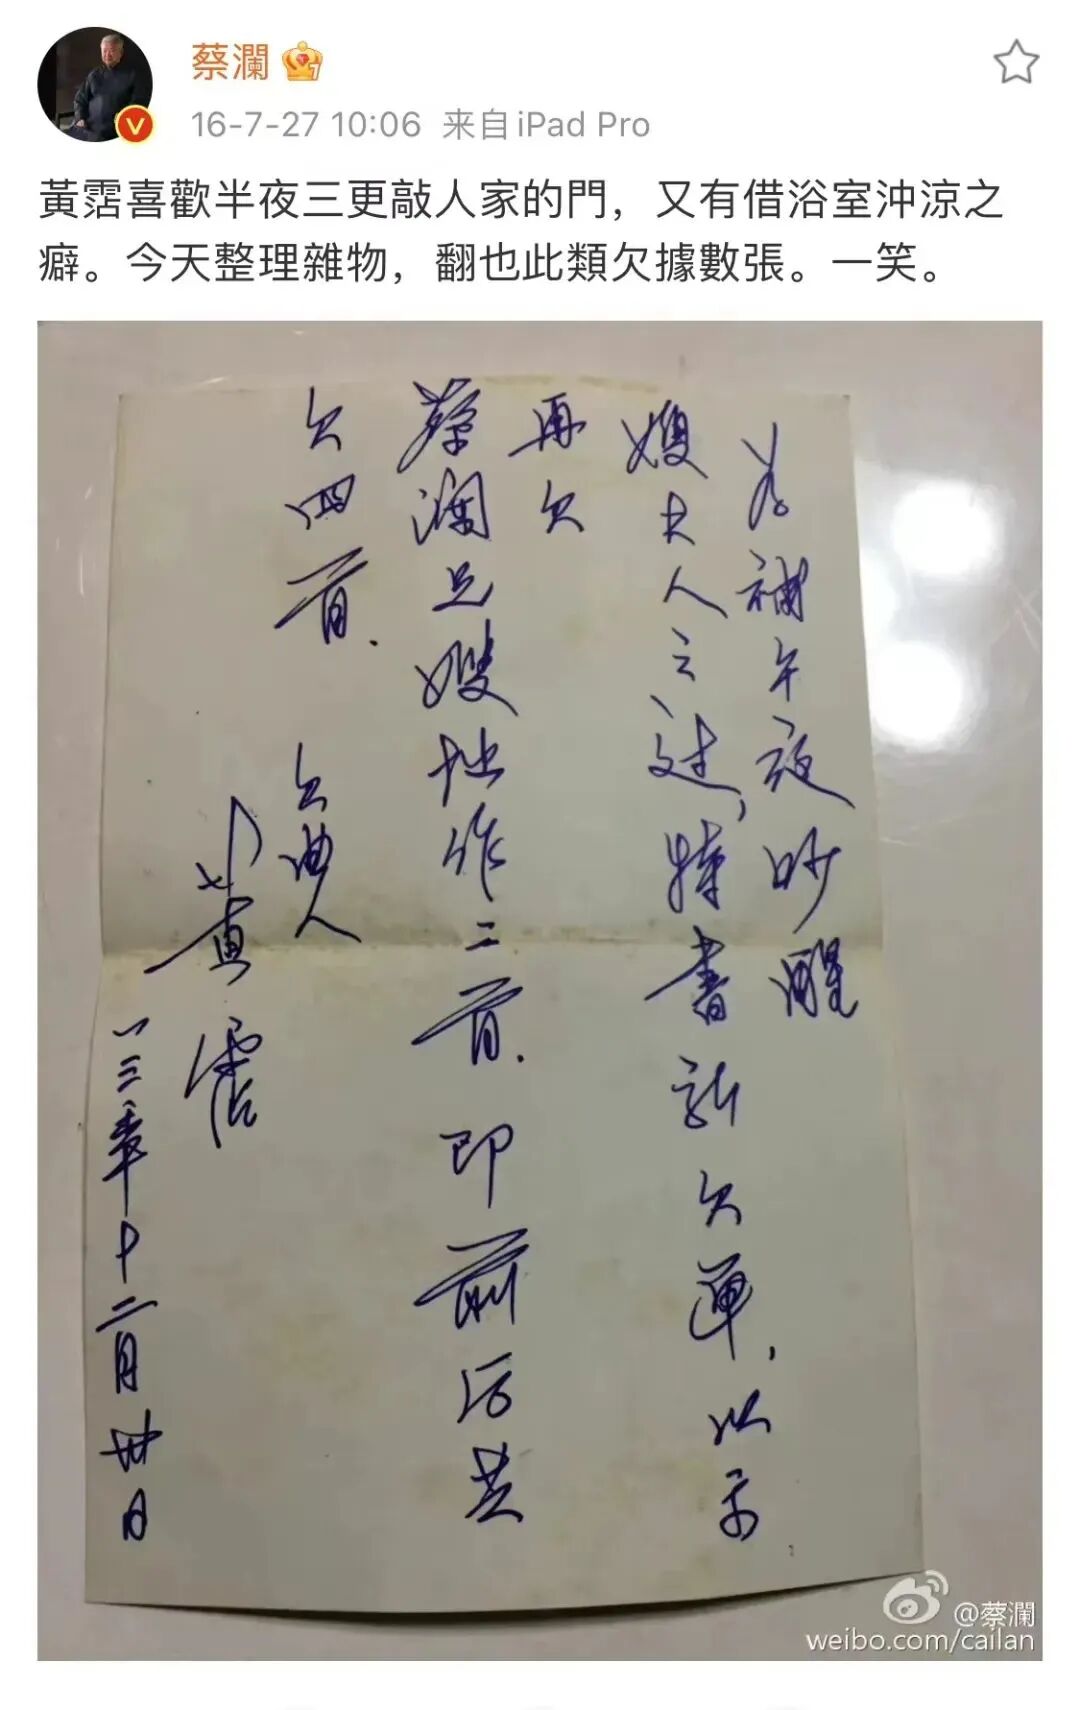 蔡瀾
16-7-27 10:06 来自 iPad Pro
黃霑喜歡半夜三更敲人家的門，又有借浴室沖涼之
癖。今天整理雜物，翻也此類欠據數張。一笑。
為補午夜吵醒
嫂夫人之过，特書新欠單，以示
再欠
蔡瀾兄嫂拙作二首．即前后共
欠四首．
欠曲人
黃霑
十二月卅日
@蔡瀾
weibo.com/cailan